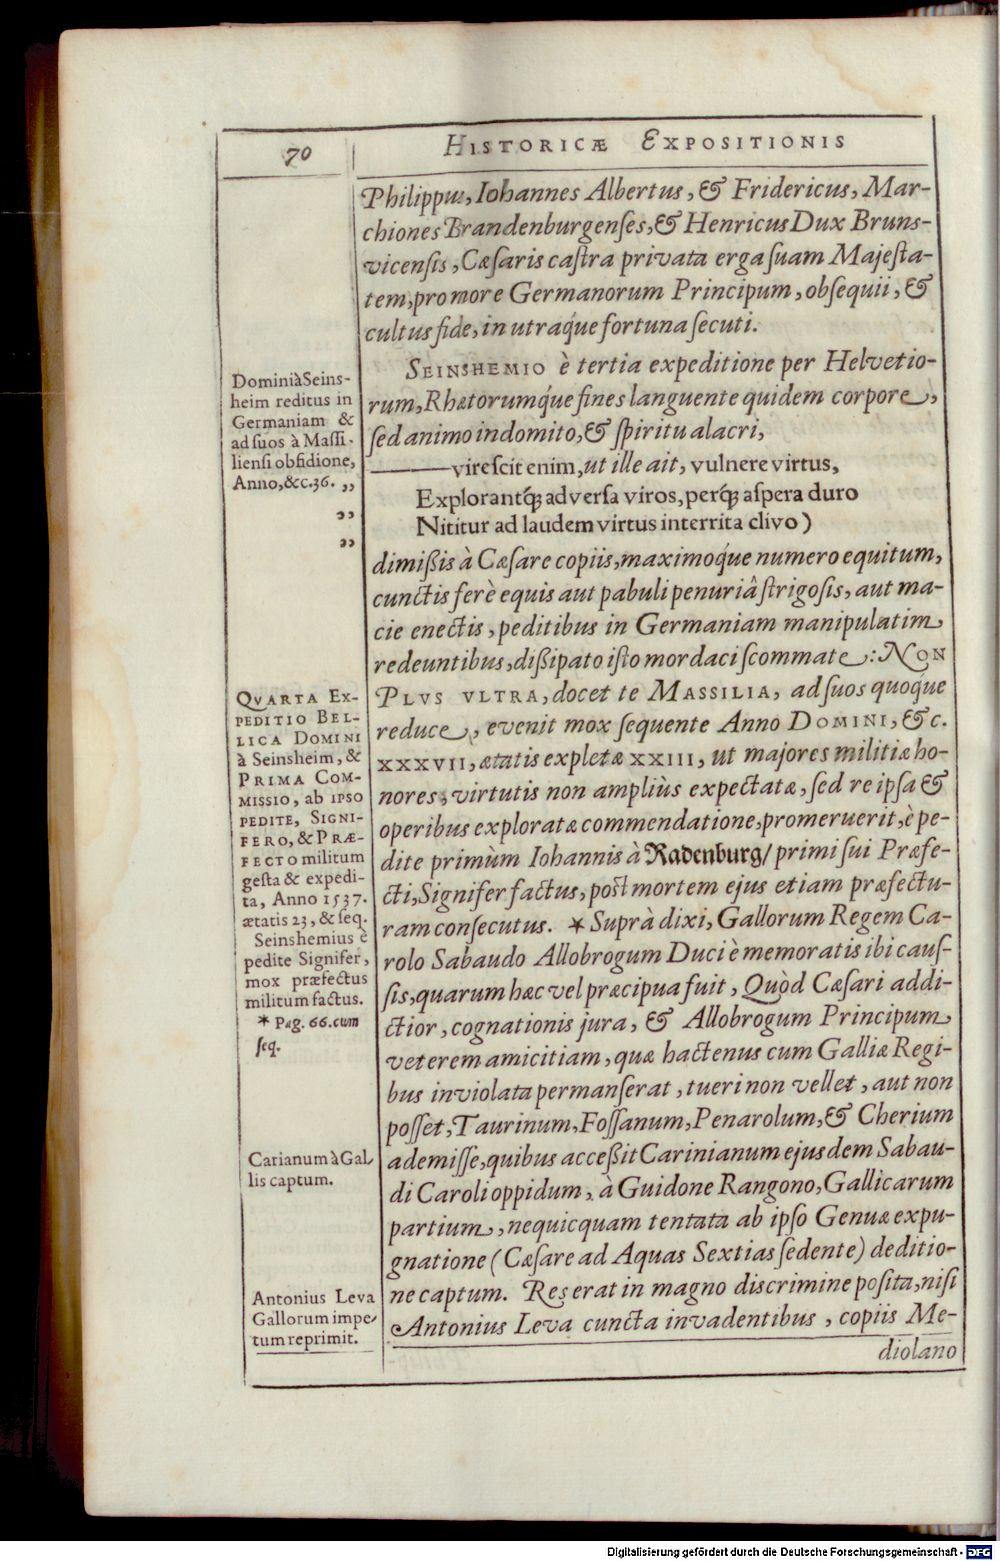 70
HISTORICÆ EXPOSITIONIS
Philippus, Iohannes Albertus, & Fridericus, Mar-
chiones Brandenburgenses, & Henricus Dux Bruns-
vicensis, Cæsaris castra privata erga suam Majesta-
tem, pro more Germanorum Principum, obsequii, &
cultus fide, in utraq́ue fortuna secuti.
SEINSHEMIO è tertia expeditione per Helvetio-
rum, Rhætorumq́ue fines languente quidem corpore,
sed animo indomito, & spiritu alacri,
——virescit enim, ut ille ait, vulnere virtus,
Explorantq́; adversa viros, perq́; aspera duro
Nititur ad laudem virtus interrita clivo)
dimißis à Cæsare copiis, maximoq́ue numero equitum,
cunctis ferè equis aut pabuli penuriâ strigosis, aut ma-
cie enectis, peditibus in Germaniam manipulatim
redeuntibus, dißipato isto mordaci scommate: NON
PLVS VLTRA, docet te MASSILIA, ad suos quoque
reduce, evenit mox sequente Anno DOMINI, & c.
XXXVII, ætatis expletæ XXIII, ut majores militiæ ho-
nores, virtutis non ampliùs expectatæ, sed re ipsa &
operibus exploratæ commendatione, promeruerit, è pe-
dite primùm Iohannis à Radenburg/ primi sui Præfe-
cti, Signifer factus, post mortem ejus etiam præfectu-
ram consecutus. * Suprà dixi, Gallorum Regem Ca-
rolo Sabaudo Allobrogum Duci è memoratis ibi caus-
sis, quarum hæc vel præcipua fuit, Quòd Cæsari addi-
ctior, cognationis jura, & Allobrogum Principum
veterem amicitiam, quæ hactenus cum Galliæ Regi-
bus inviolata permanserat, tueri non vellet, aut non
posset, Taurinum, Fossanum, Penarolum, & Cherium
ademisse, quibus acceßit Carinianum ejusdem Sabau-
di Caroli oppidum, à Guidone Rangono, Gallicarum
partium, nequicquam tentata ab ipso Genuæ expu-
gnatione (Cæsare ad Aquas Sextias sedente) deditio-
ne captum. Res erat in magno discrimine posita, nisi
Antonius Leva cuncta invadentibus, copiis Me-
diolano
Domini à Seins-
heim reditus in
Germaniam &
ad suos à Massi-
liensi obsidione,
Anno, &c. 36. ,,
,,
,,
QVARTA EX-
PEDITIO BEL-
LICA DOMINI
à Seinsheim, &
PRIMA COM-
MISSIO, ab IPSO
PEDITE, SIGNI-
FERO, & PRÆ-
FECTO militum
gesta & expedi-
ta, Anno 1537.
ætatis 23, & seq.
Seinshemius è
pedite Signifer,
mox præfectus
militum factus.
* Pag. 66. cum
seq.
Carianum à Gal-
lis captum.
Antonius Leva
Gallorum impe-
tum reprimit.
Digitalisierung gefördert durch die Deutsche Forschungsgemeinschaft - DFG